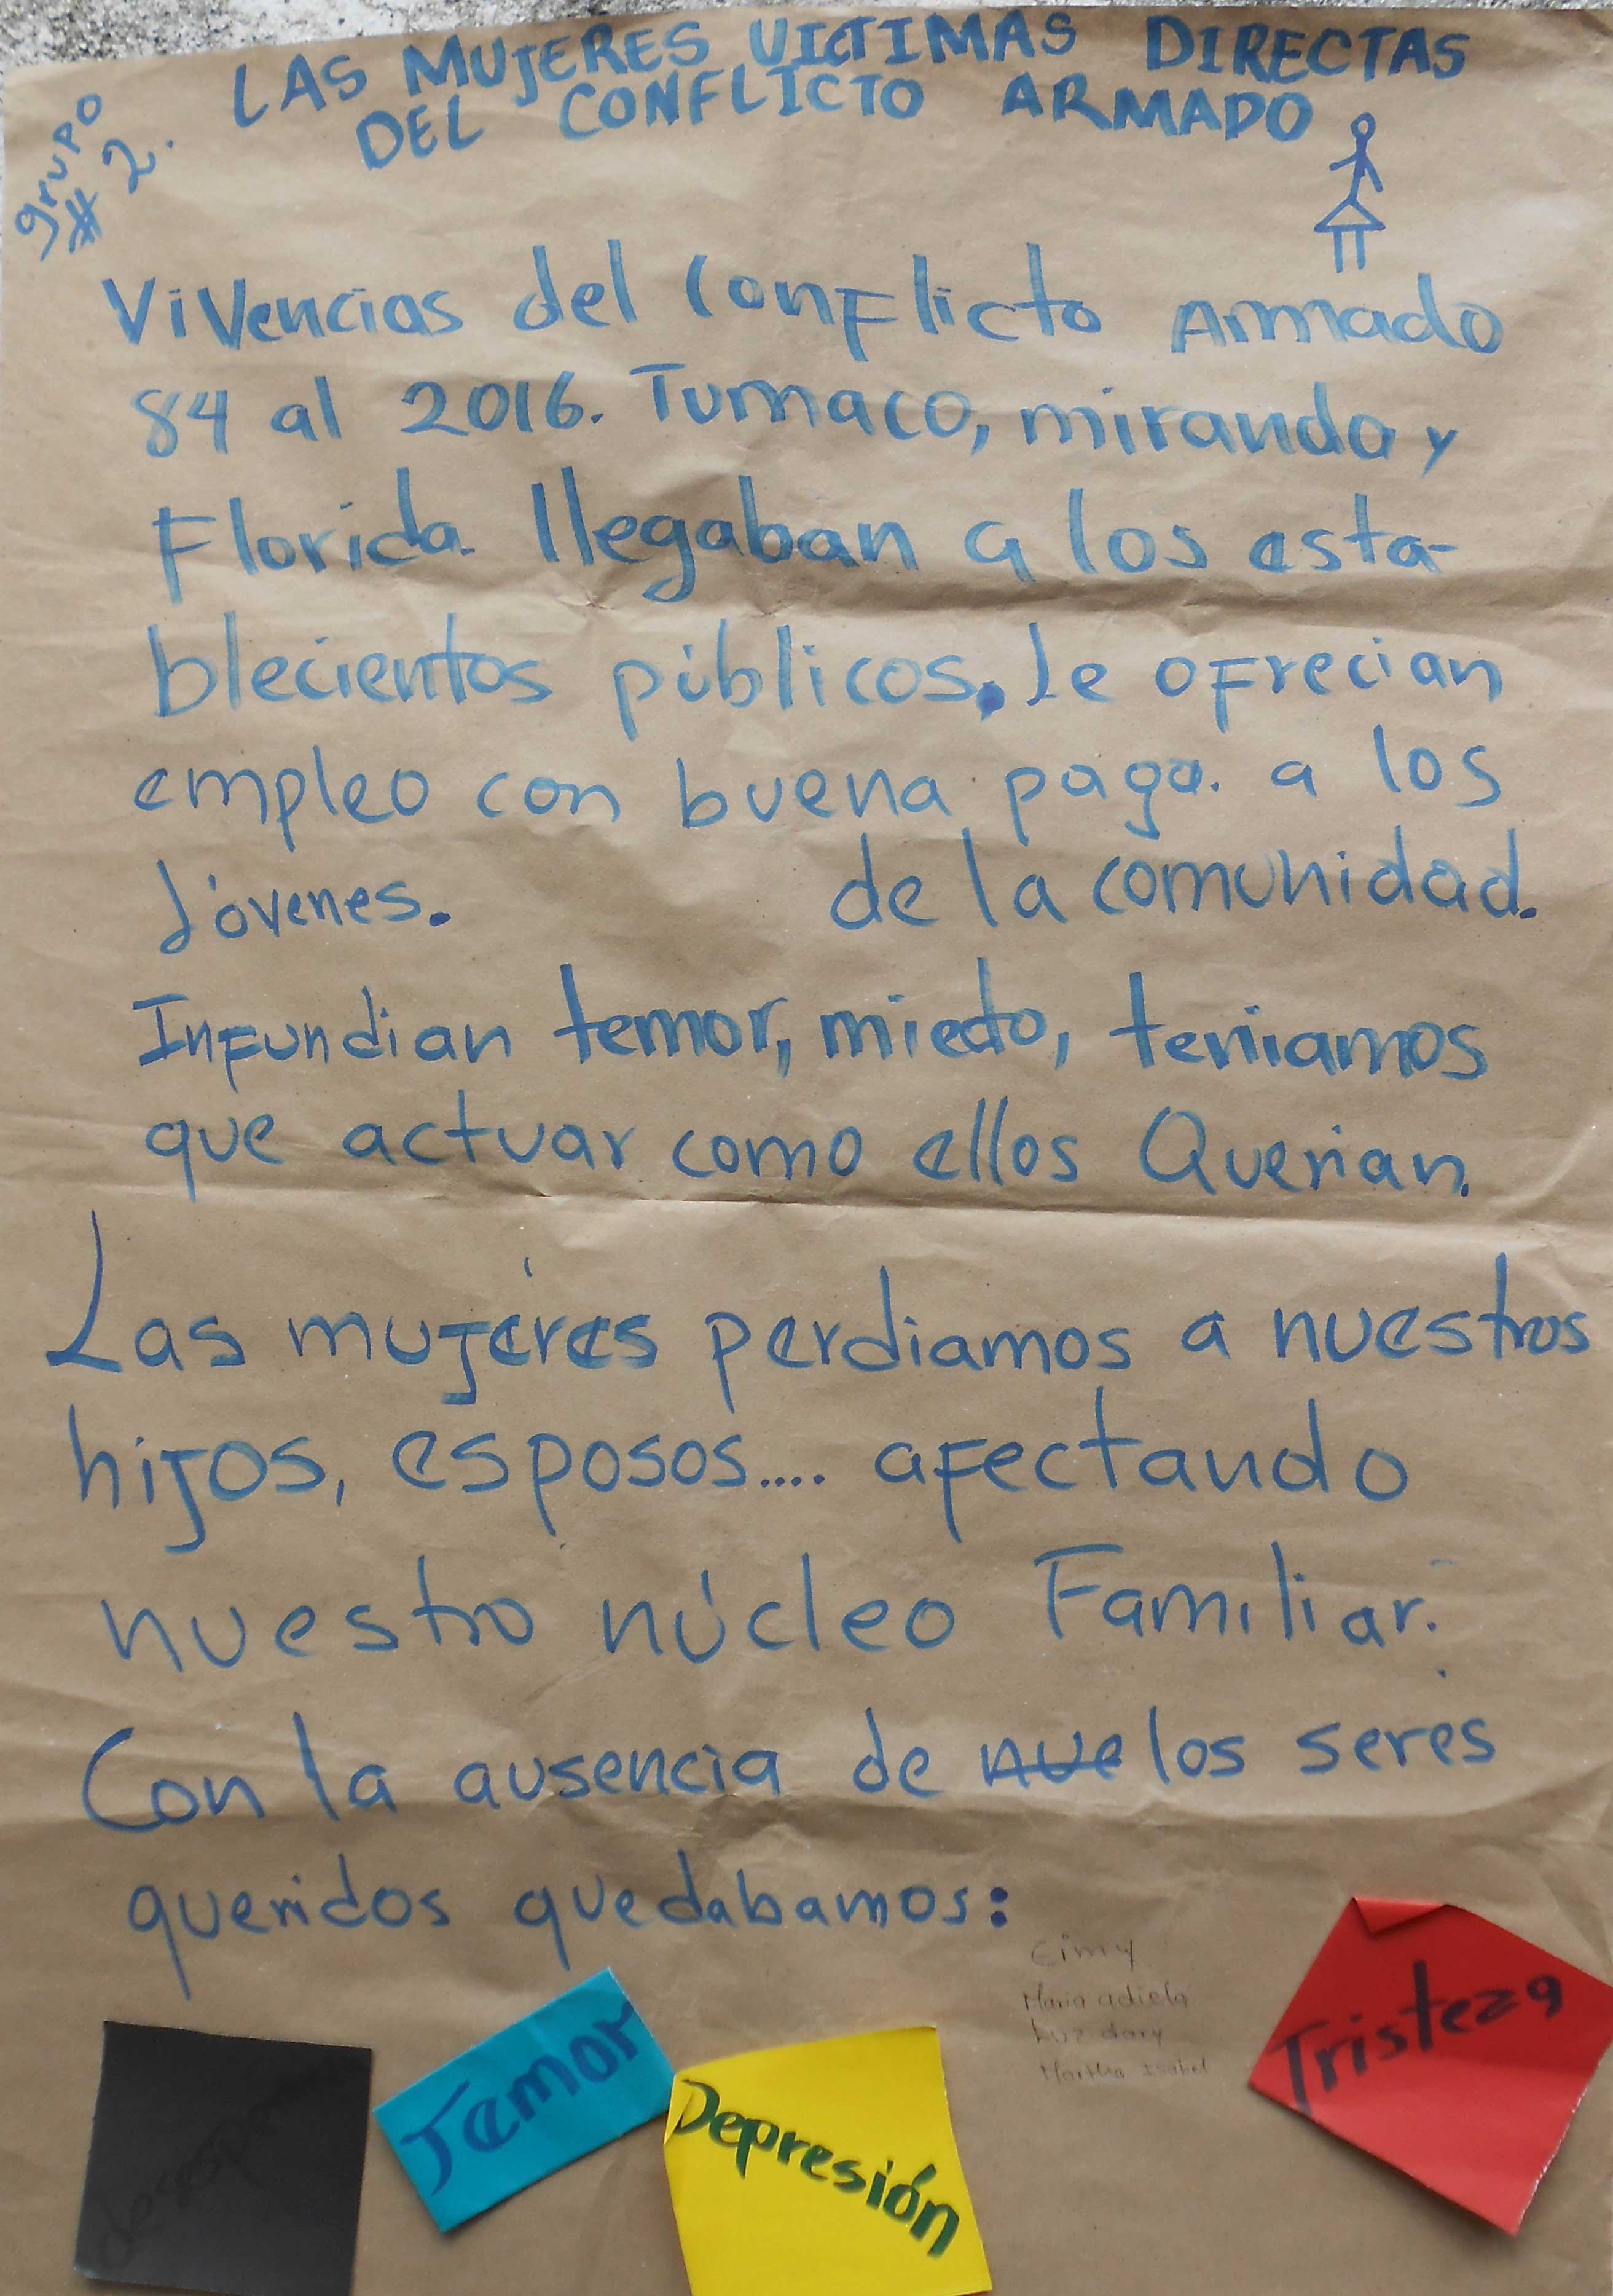 LAS MUJERES VICTIMAS DIRECTAS
DEL CONFLICTO ARMADO
grupo
# 2.
Vivencias del Conflicto Armado
84 al 2016. Tumaco, miranda y
Florida. llegaban a los esta-
blecientos públicos. le ofrecian
empleo con buena paga. a los
Jóvenes. de la comunidad.
Infundian temor, miedo, teniamos
que actuar como ellos Querian.
Las mujeres perdiamos a nuestros
hijos, esposos.... afectando
nuestro núcleo Familiar.
Con la ausencia de nue los seres
queridos quedabamos:
Eimy
Maria adiela
Luz dary
Martha Isabel
Temor
Depresión
Tristeza